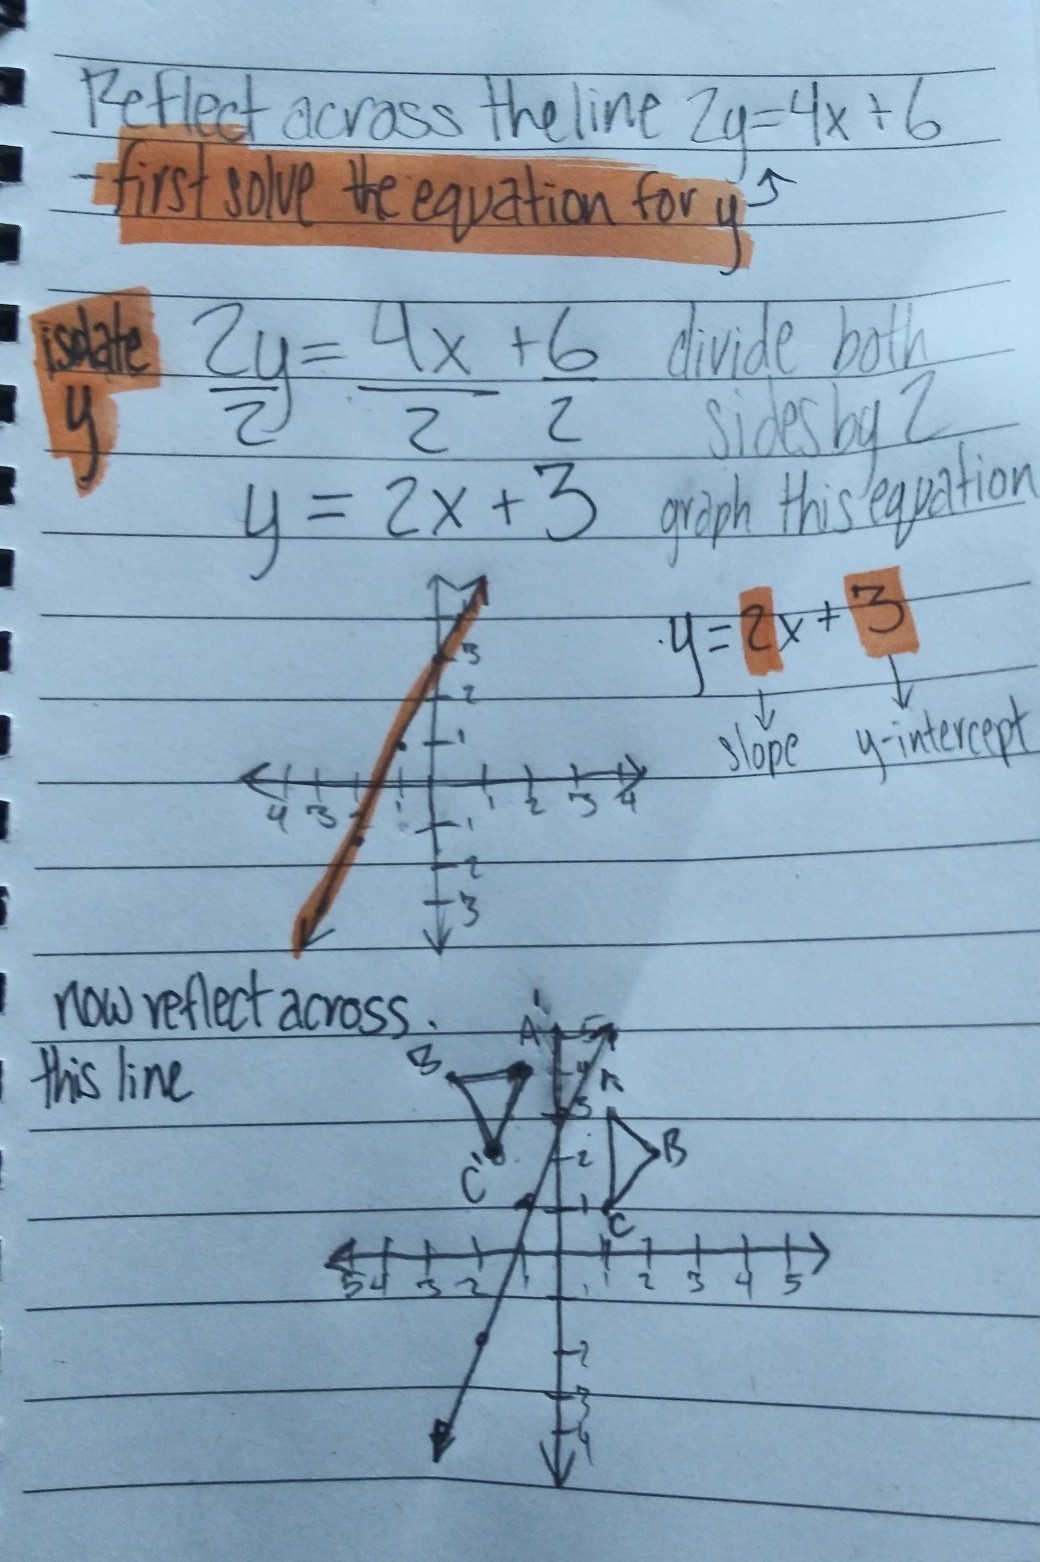 Reflect across the line 2y=4x+6
-first solve the equation for y
isolate y
2y = 4x + 6 divide both
2 2 2 sides by 2
y = 2x + 3 graph this equation
y = 2x + 3
slope y-intercept
3
2
1
4 3 2 1 1 2 3 4
1
2
3
now reflect across
this line
A' 5
B 4
3
2 B
C' 1 C
5 4 3 2 1 1 2 3 4 5
1
2
3
4